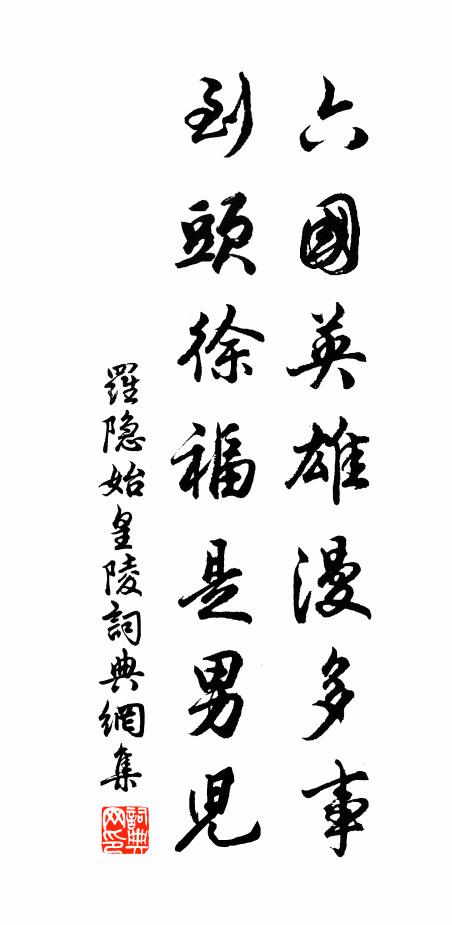 六國英雄漫多事
到頭徐福是男兒
羅隐始皇陵詞典網集
詞典网印